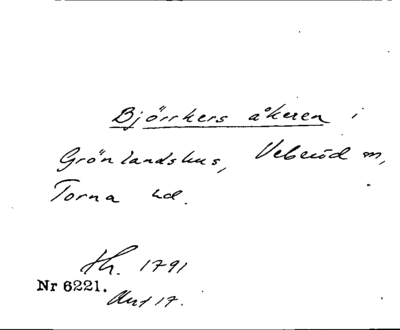 Björrkers åkeren i
Grönlandshus, Veberöd m,
Torna hd.
th. 1791
Nr 6221.
17.